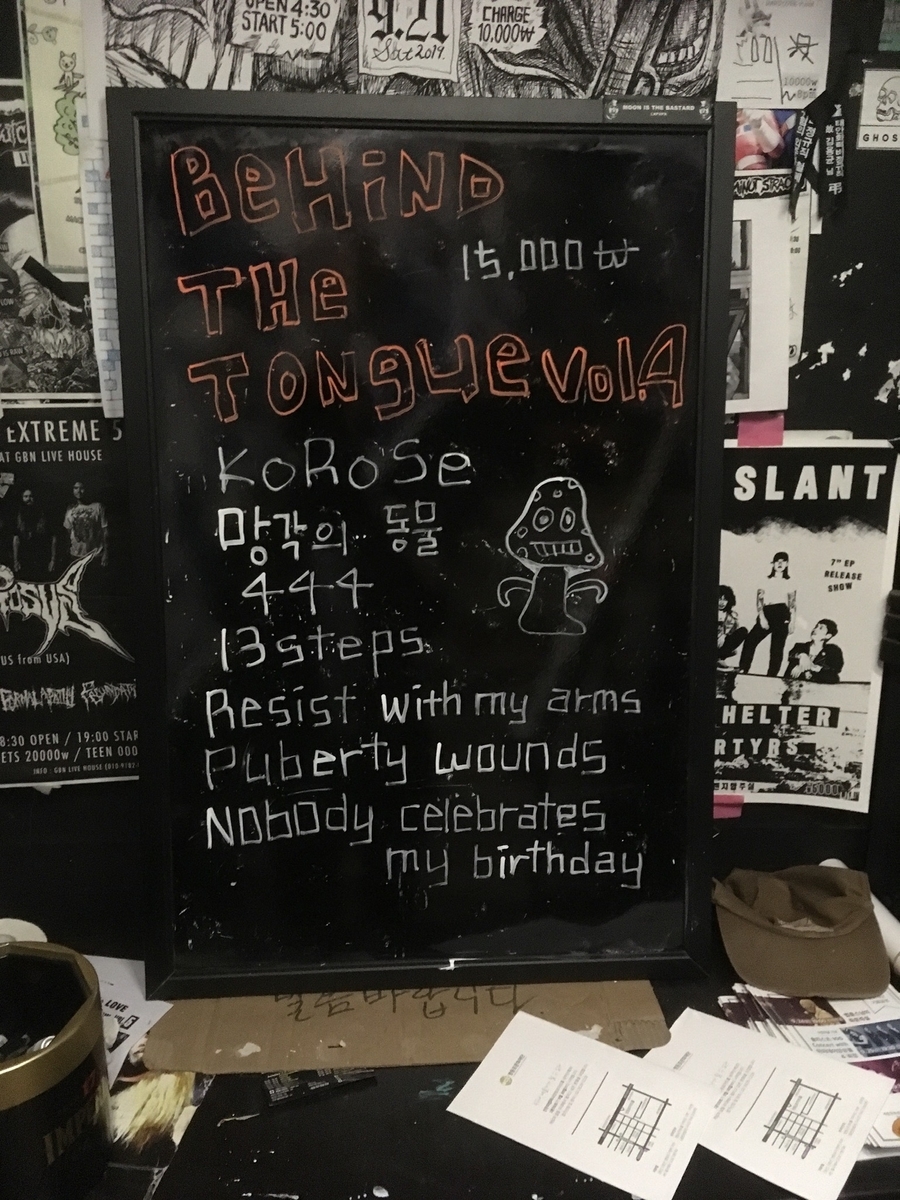 OPEN 4:30
START 5:00
9.21
Sat 2019.
CHARGE
10,000₩
10000w
MOON IS THE BASTARD
GHOS
BEHIND
THE
15,000 ₩
TONGUE Vol.4
KOROSE
망각의 동물
444
13 steps
Resist with my arms
Puberty wounds
Nobody celebrates
my birthday
EXTREME 5
AT GBN LIVE HOUSE
US from USA)
8:30 OPEN / 19:00 STAR
ETS 20000w / TEEN 000
INFO : GBN LIVE HOUSE (010-9782-
SLANT
7" EP
RELEASE
SHOW
HELTER
RTYRS
LOVE